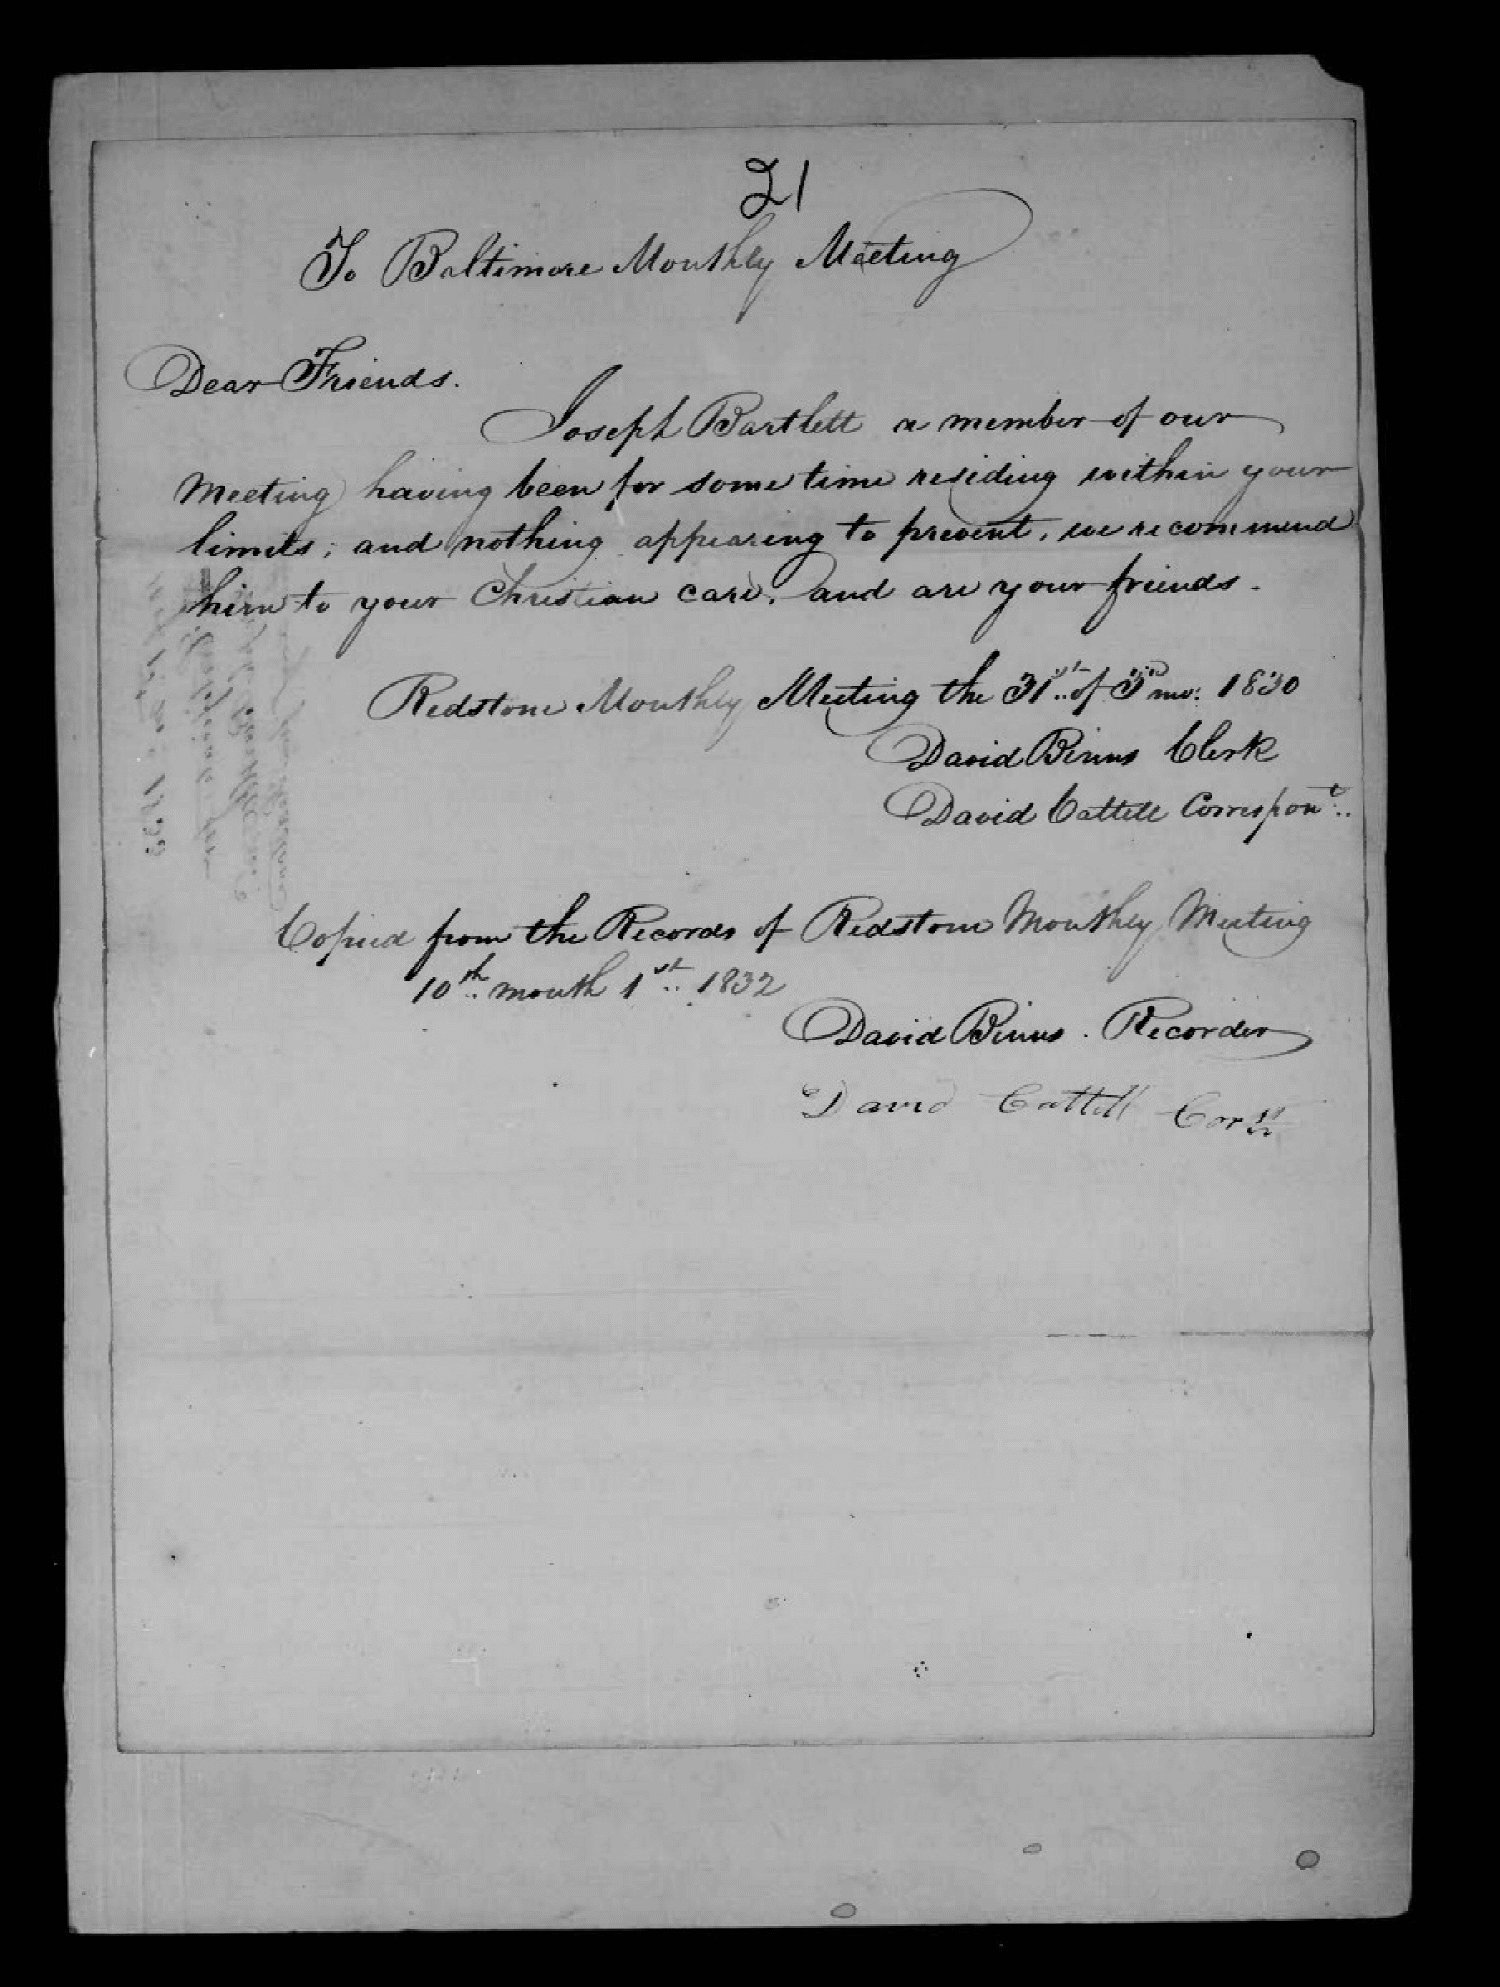 21
To Baltimore Monthly Meeting
Dear Friends.
Joseph Bartlett a member of our
Meeting having been for some time residing within your
limits; and nothing appearing to prevent, we recommend
him to your Christian care, and are your friends.
Redstone Monthly Meeting the 31st of 3rd mo: 1830
David Binns Clerk
David Cattell Correspont
Copied from the Records of Redstone Monthly Meeting
10th month 1st 1832
David Binns. Recorder
David Cattell Cor